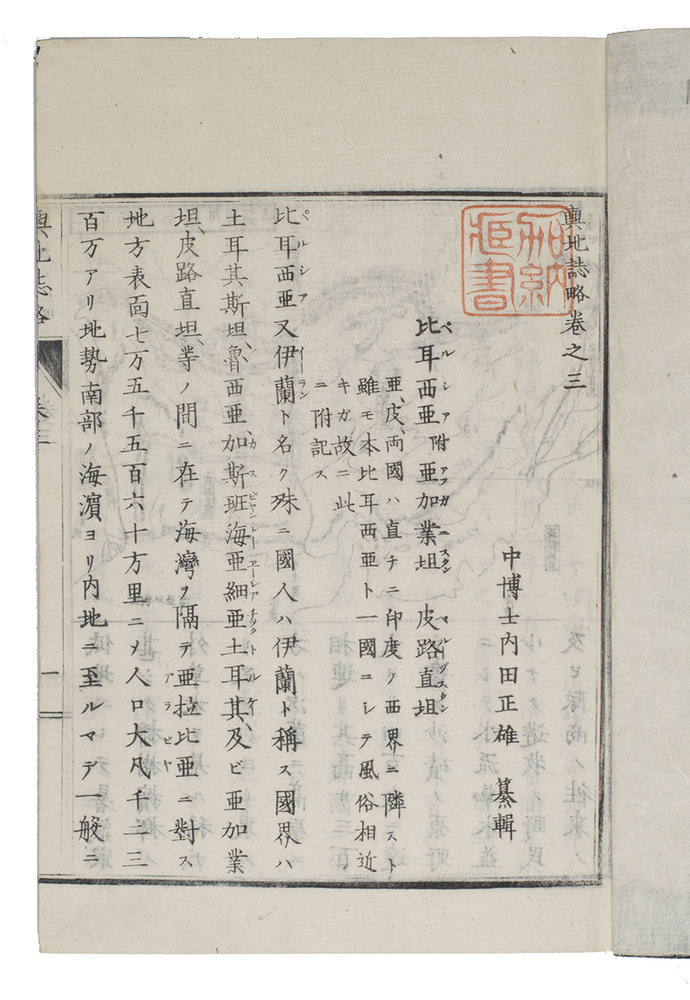 輿地誌略卷之三
中博士內田正雄 纂輯
比耳西亜附亜加業坦 皮路直坦
亜、皮、両國ハ直チニ印度ノ西界ニ隣スト
雖モ本比耳西亜ト一國ニシテ風俗相近
キガ故ニ此
ニ附記ス
比耳西亜又伊蘭ト名ク殊ニ國人ハ伊蘭ト稱ス國界ハ
土耳其斯坦、魯西亜、加斯班海亜細亜土耳其、及ビ亜加業
坦、皮路直坦、等ノ間ニ在テ海灣ヲ隔テ亜拉比亜ニ對ス
地方表面七万五千五百六十方里ニメ人口大凡千二三
百万アリ地勢南部ノ海濵ヨリ内地ニ至ルマデ一般ニ
輿地誌畧
卷三
一